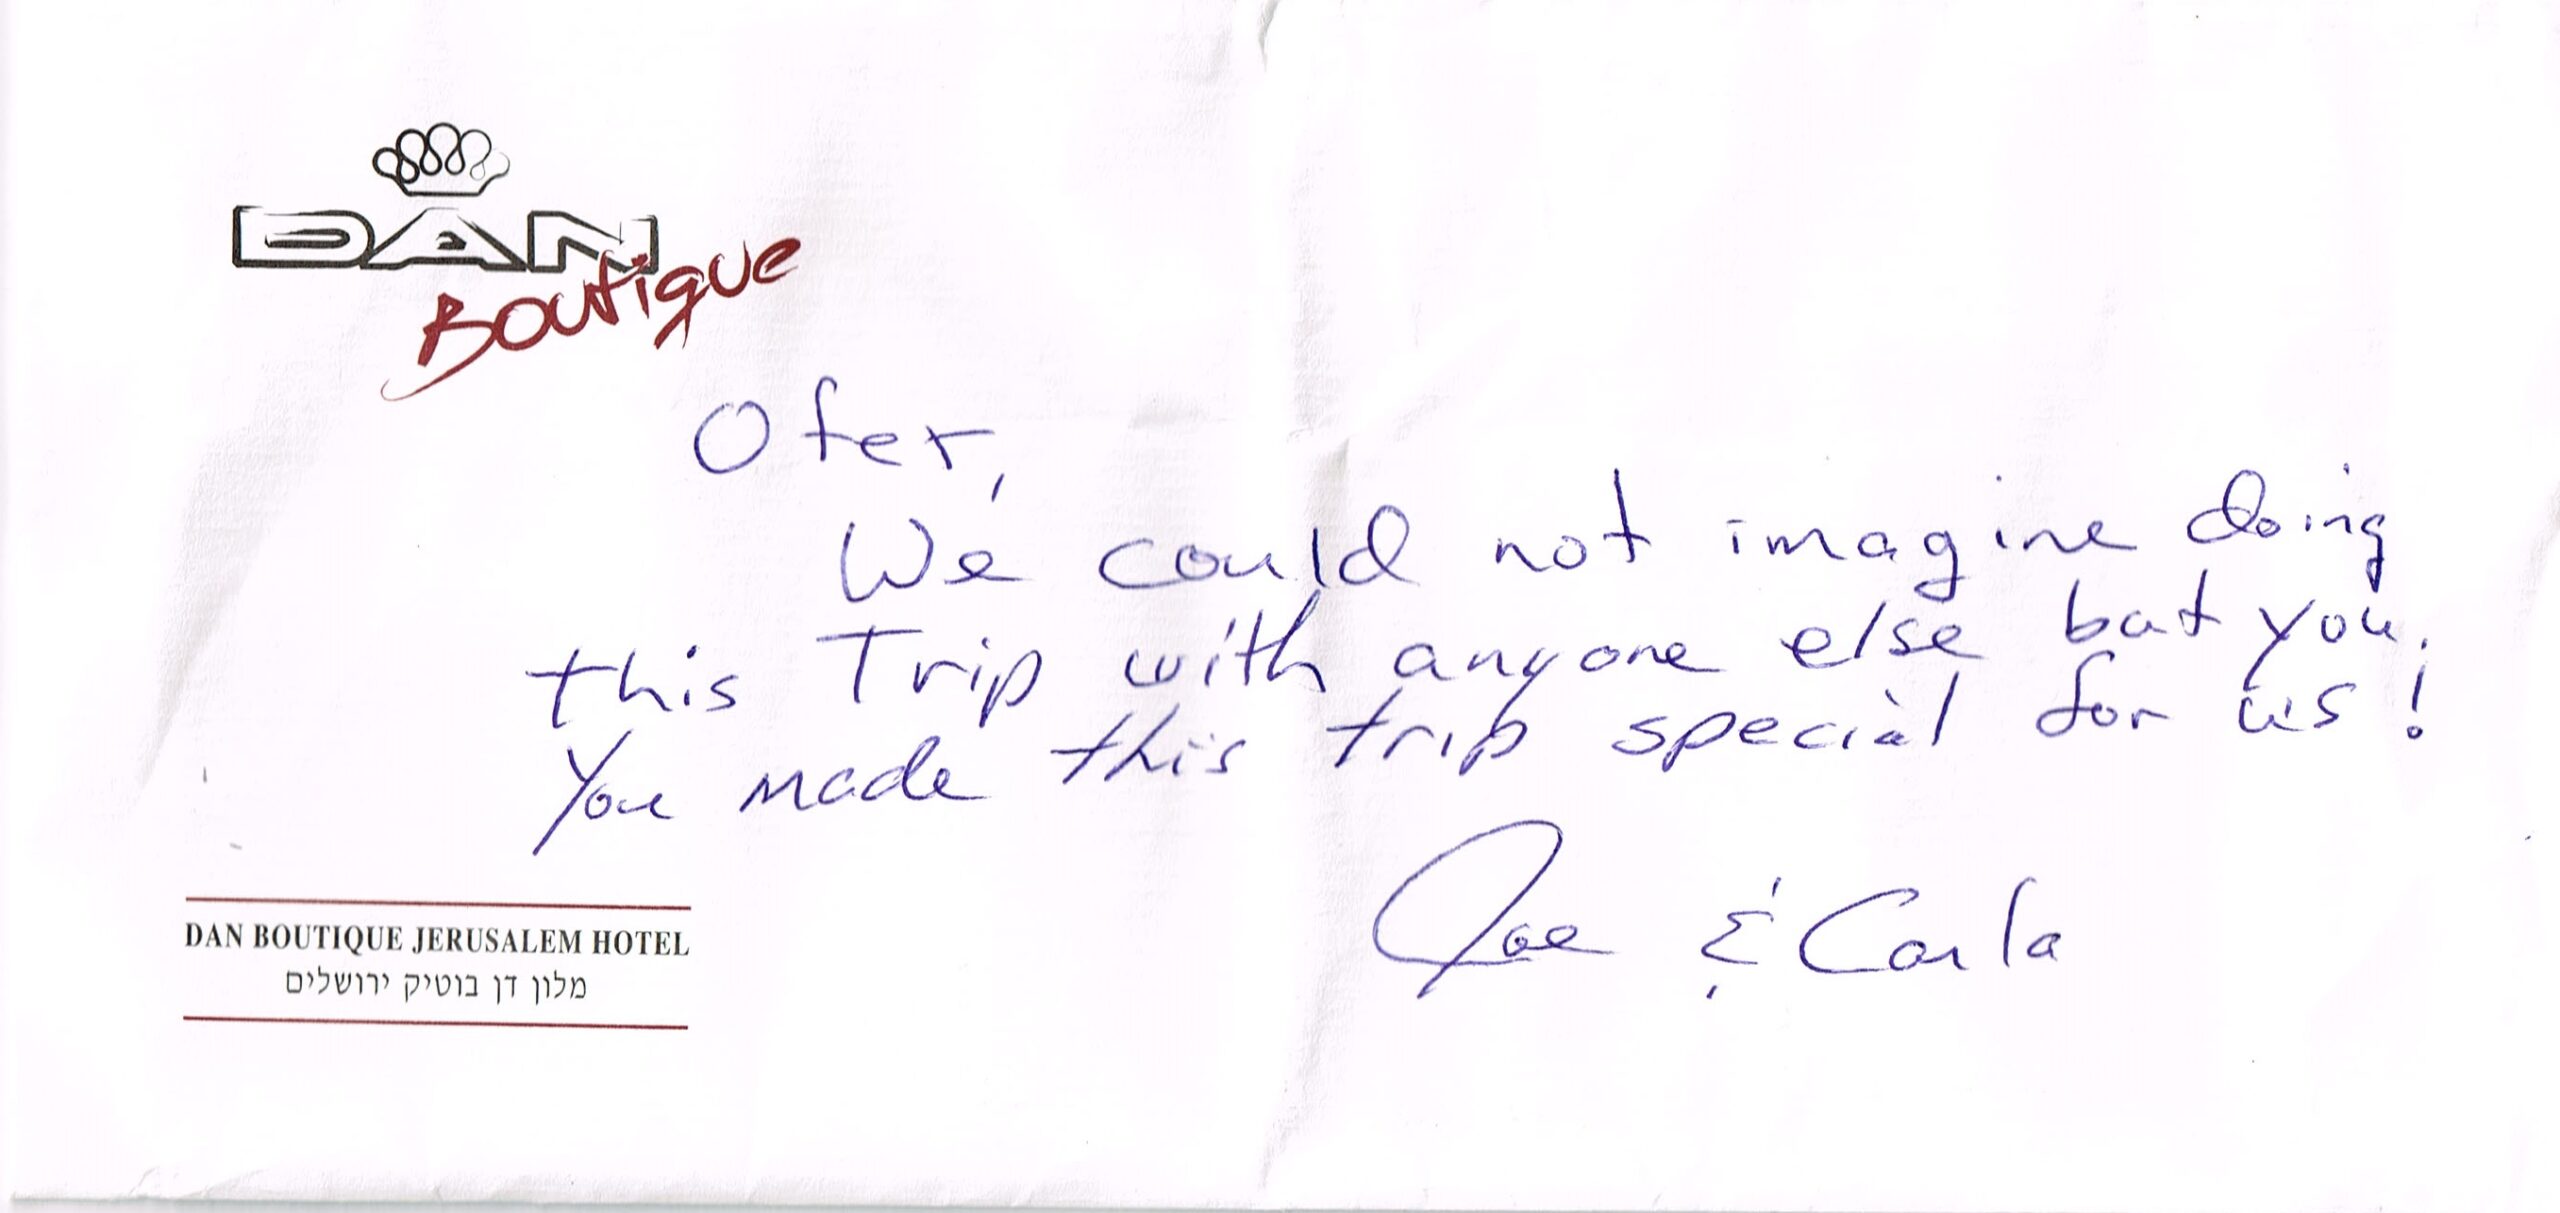 DAN
Boutique
Ofer,
We could not imagine doing
this Trip with anyone else but you.
You made this trip special for us!
Joe & Carla
DAN BOUTIQUE JERUSALEM HOTEL
מלון דן בוטיק ירושלים